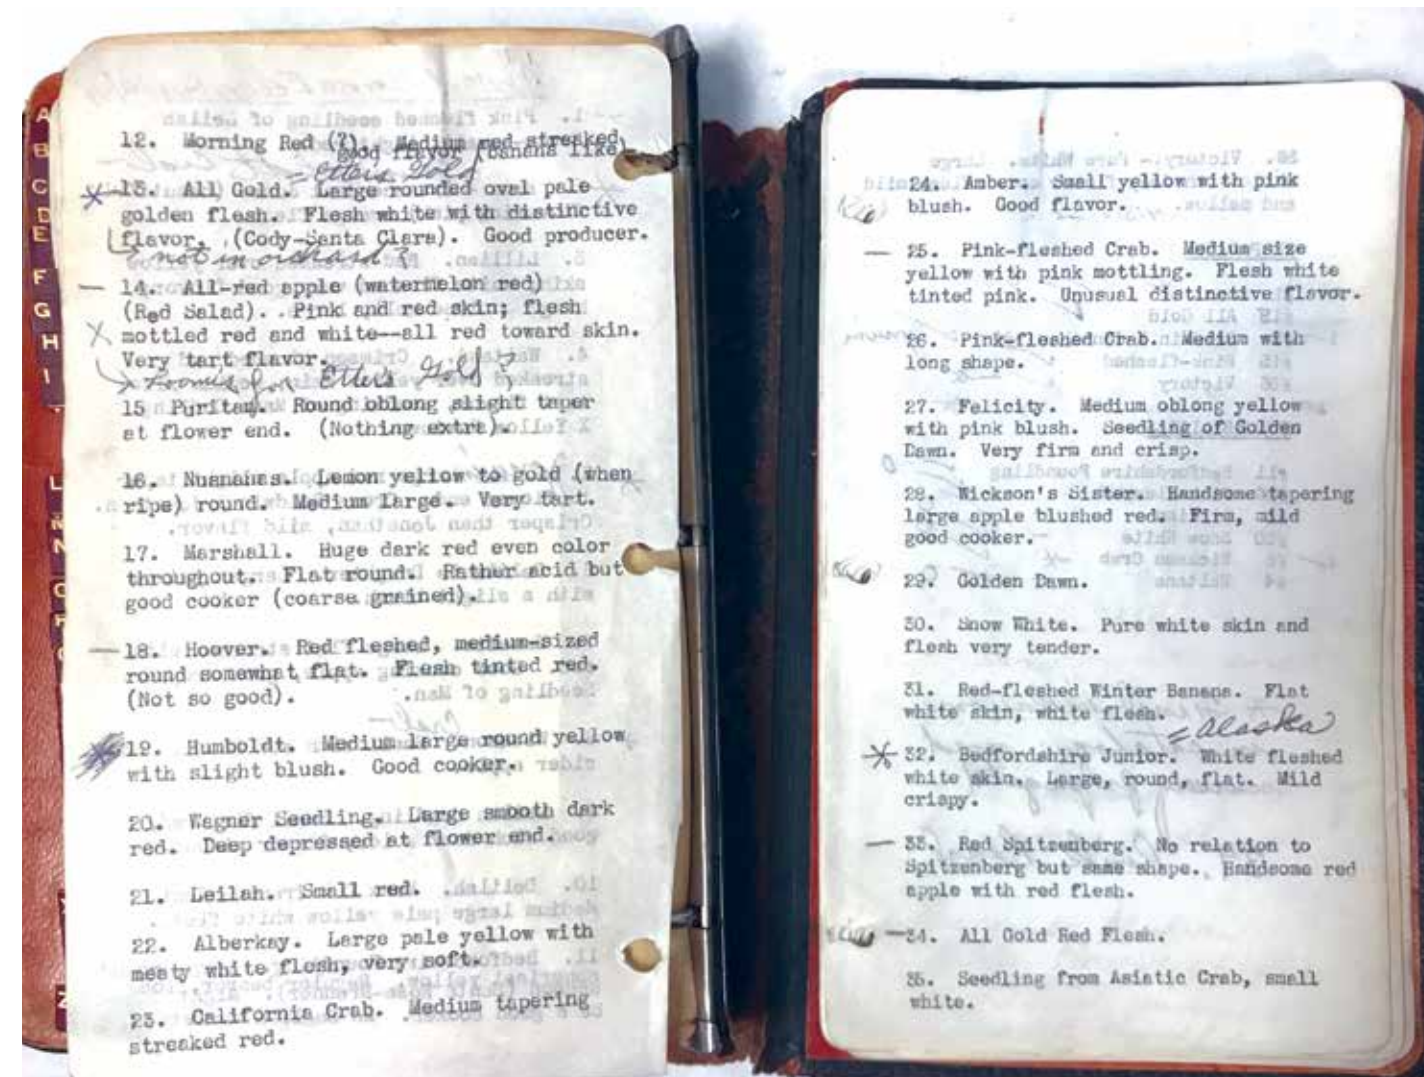 A
B
C
D
E
F
G
H
I
L
M
N
Z
12. Morning Red (?). Medium red streaked,
good flavor (banana like)
= Etters Gold
13. All Gold. Large rounded oval pale
golden flesh. Flesh white with distinctive
flavor. (Cody-Santa Clara). Good producer.
not in orchard?
14. All-red apple (watermelon red)
(Red Salad). Pink and red skin; flesh
X mottled red and white--all red toward skin.
Very tart flavor.
Loomis for Etter's Gold?
15 Puritan. Round oblong slight taper
at flower end. (Nothing extra).
16. Nuanahs. Lemon yellow to gold (when
ripe) round. Medium large. Very tart.
17. Marshall. Huge dark red even color
throughout. Flat round. Rather acid but
good cooker (coarse grained).
18. Hoover. Red fleshed, medium-sized
round somewhat flat. Flesh tinted red.
(Not so good).
19. Humboldt. Medium large round yellow
with slight blush. Good cooker.
20. Wagner Seedling. Large smooth dark
red. Deep depressed at flower end.
21. Leilah. Small red.
22. Alberkay. Large pale yellow with
meaty white flesh, very soft.
23. California Crab. Medium tapering
streaked red.
24. Amber. Small yellow with pink
blush. Good flavor.
25. Pink-fleshed Crab. Medium size
yellow with pink mottling. Flesh white
tinted pink. Unusual distinctive flavor.
26. Pink-fleshed Crab. Medium with
long shape.
27. Felicity. Medium oblong yellow
with pink blush. Seedling of Golden
Dawn. Very firm and crisp.
28. Wickson's Sister. Handsome tapering
large apple blushed red. Firm, mild
good cooker.
29. Golden Dawn.
30. Snow White. Pure white skin and
flesh very tender.
31. Red-fleshed Winter Banana. Flat
white skin, white flesh.
= Alaska
32. Bedfordshire Junior. White fleshed
white skin. Large, round, flat. Mild
crispy.
33. Red Spitzenberg. No relation to
Spitzenberg but same shape. Handsome red
apple with red flesh.
34. All Gold Red Flesh.
35. Seedling from Asiatic Crab, small
white.